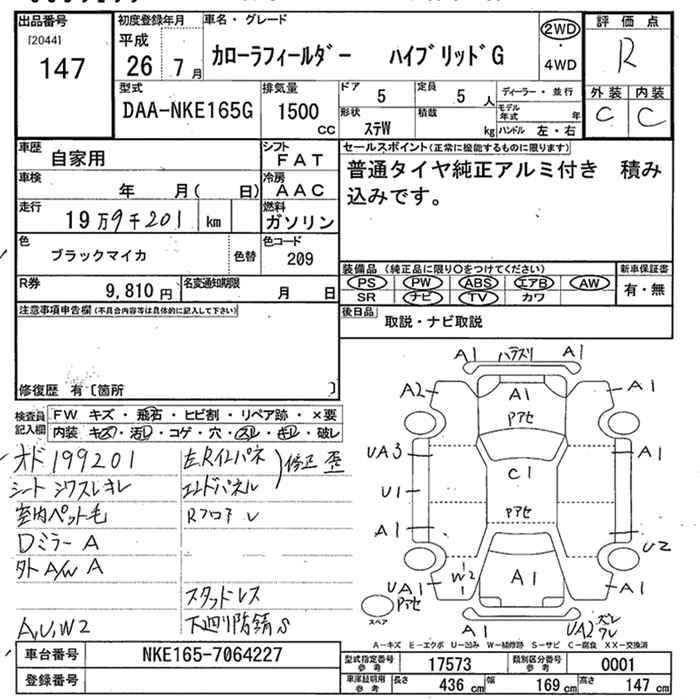 出品番号
[2044]
147
初度登録年月
平成
26 7月
車名・グレード
カローラフィールダー ハイブリッドG
2WD
・
4WD
評価点
R
外装 内装
C C
型式
DAA-NKE165G
排気量
1500
CC
ドア
5
定員
5人
形状
ステW
積載
kg
ディーラー・並行
モデル年式 年
ハンドル 左・右
車歴
自家用
シフト
FAT
車検
年 月( 日)
冷房
AAC
走行
19万9千201 km
燃料
ガソリン
色
ブラックマイカ
色替
色コード
209
R券
9,810円
名変通知期限
月 日
セールスポイント(正常に機能するものに限ります)
普通タイヤ純正アルミ付き 積み
込みです。
装備品(純正品に限り○をつけてください)
PS PW ABS エアB AW
SR ナビ TV カワ
新車保証書
有・無
後日品
取説・ナビ取説
注意事項申告欄(不具合内容等は具体的に記入して下さい)
修復歴 有〔箇所 〕
検査員
記入欄
FW キズ・飛石・ヒビ割・リペア跡・×要
内装 キズ・汚レ・コゲ・穴・スレ・キレ・破レ
オド 199201
シート シワスレキレ
室内ペット毛
Dミラー A
外A/W A
A,U,W2
左Rインパネ
エンドパネル
修正 歪
Rフロア レ
スタッドレス
下廻り防錆S
A1 ハラスリ A1
A2 A1 A1
Pアセ
UA3 A1
C1
U1
Pアセ
A1 U2
W2 A1
UA1 A1
Pアセ
スペア
A1 UA2 ズレ
ワレ
A-キズ E-エクボ U-凹み W-補修跡 S-サビ C-腐食 XX-交換済
車台番号
NKE165-7064227
登録番号
型式指定番号
参考
17573
類別区分番号
参考
0001
車庫証明用
参考
長さ 436 cm
幅 169 cm
高さ 147 cm